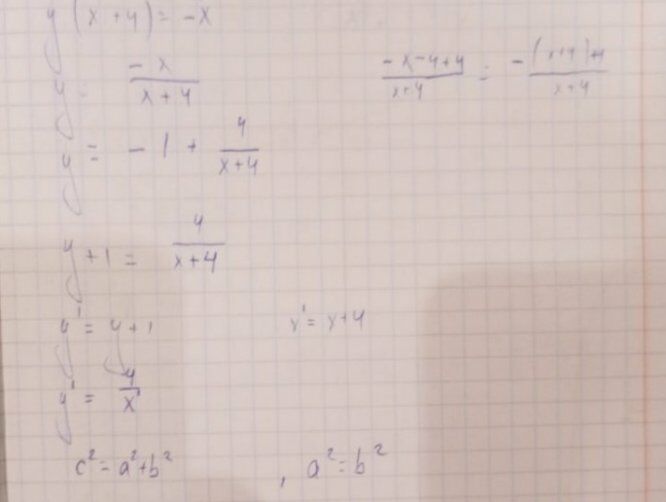 y (x + 4) = -x
y = -x / (x + 4)
(-x - 4 + 4) / (x + 4) = (-(x + 4) + 4) / (x + 4)
y = -1 + 4 / (x + 4)
y + 1 = 4 / (x + 4)
y' = y + 1
x' = x + 4
y' = 4 / x'
c² = a² + b² , a² = b²